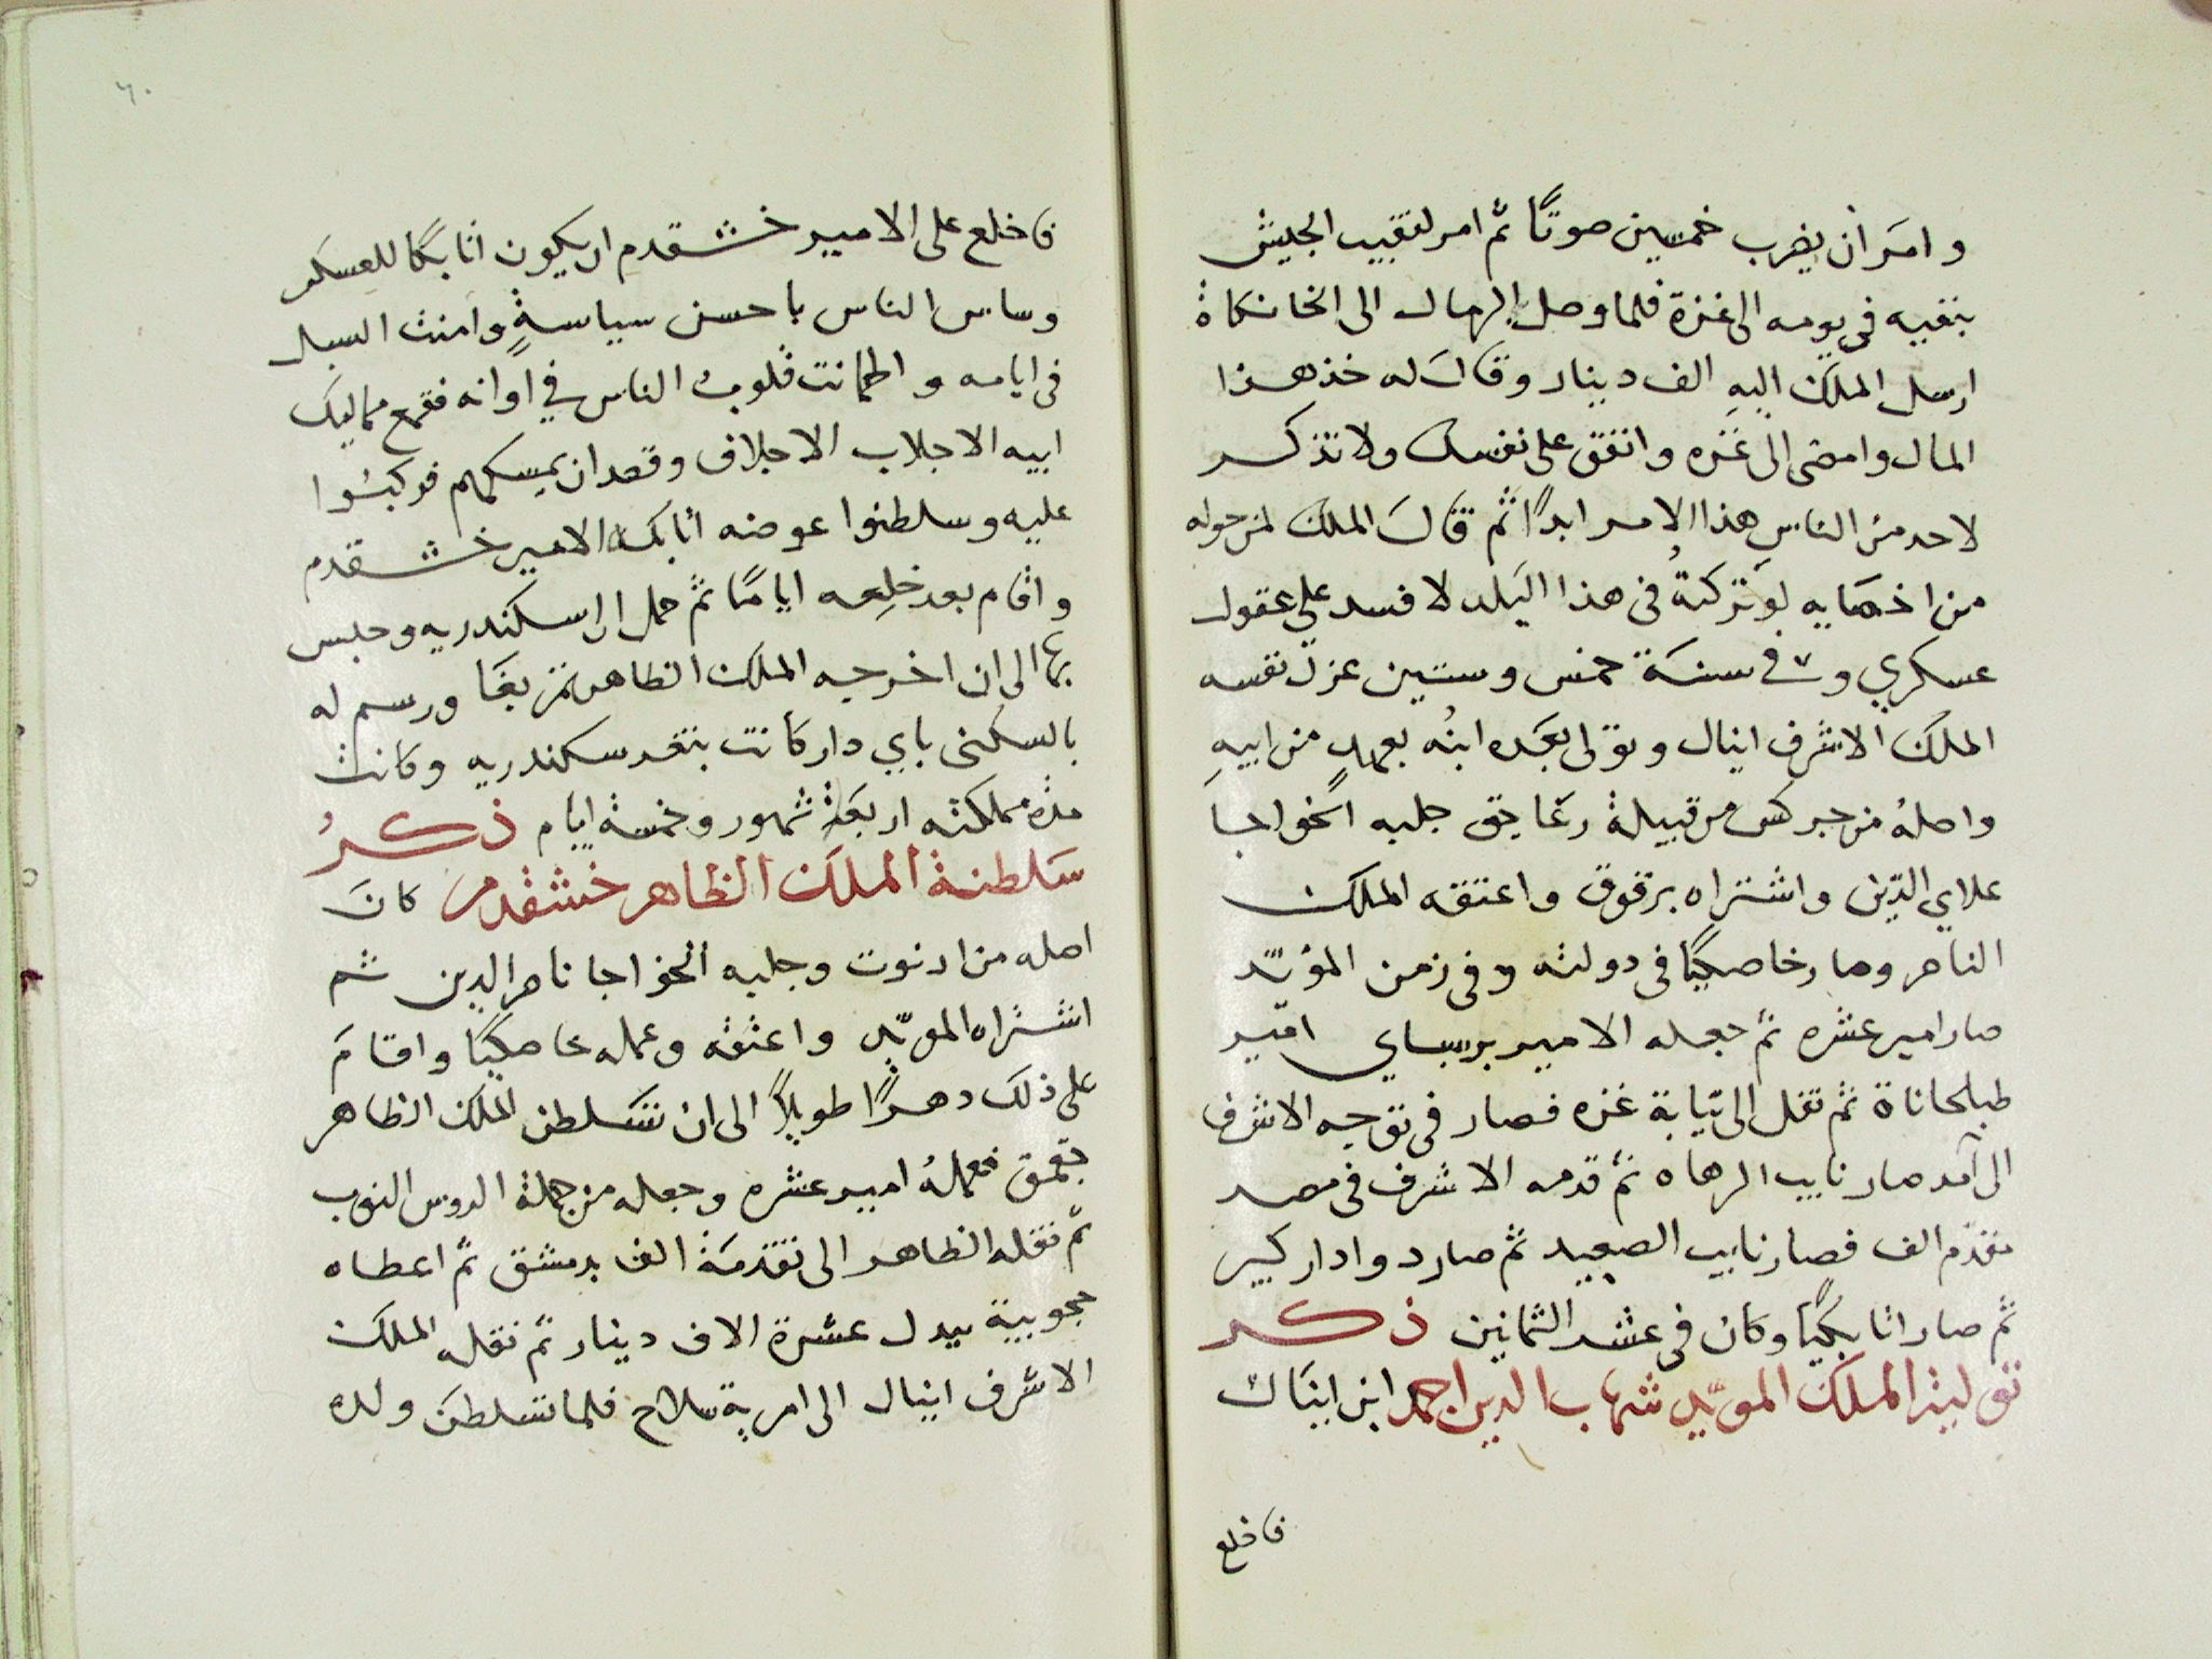 وامَر ان يضرب خمسين صوتًا ثم امر لنقيب الجيش
بنفيه في يومه الى غزة فلما وصل الرمال الى الخانكاة
ارسل الملك اليهِ الف دينار وقالَ له خذ هذا
المال وامضى الى غزه وانفق على نفسك ولا تذكر
لاحد من الناسِ هذا الامر ابدًا ثم قالَ الملك لمن حوله
من اخصايه لو تركتهُ في هذا البَلد لافسد علي عقول
عسكري و في سنَة خمس وستين عزل نفسه
الملك الاشرف اينال وتولى بعَده ابنُه بعهدٍ من ابيهِ
واصلهُ من جركس من قبيلة رغايق جلبه الخواجا
علاي الدّين واشتراه برقوق واعتقه الملك
الناصر وصار خاصكيًا في دولته وفي زمن المؤيّد
صار امير عشره ثم جعله الامير برسباي امير
طبلخاناة ثم نقل الى نيابة غزه فصار في توجه الاشرف
الى آمد صار نايب الرهاه ثم قدمه الاشرف في مصر
مقدم الف فصار نايب الصعيد ثم صار دوادار كبير
ثم صار اتابكيًا وكان في عشر الثمانين ذكر
توليه الملك المويّد شهاب الدين احمد ابن اينال
فاخلع
٦٠
فاخلع على الامير خشقدم ان يكون اتابكًا للعسكر
وساس الناس باحسن سياسةٍ وامنت السبل
في ايامه واطمانت قلوب الناس في اوانه فقمع مماليك
ابيه الاجلاب الاجلاف وقصد ان يمسكهم فركبُوا
عليه وسلطنوا عوضه اتابكه الامير خشقدم
واقام بعد خلِعه ايامًا ثم حمل الى اسكندريه وحبس
بها الى ان اخرجه الملك الظاهر تمربغَا ورسم له
بالسكنى باي دار كانت بثغر سكندريه وكانت
مدة مملكته اربعَة شهور وخمسة ايام ذكرُ
سَلطنة الملك الظاهر خشقدم كانَ
اصله من ارنوت وجلبه الخواجا ناصر الدين ثم
اشتراه المويّد واعتقه وعمله خاصكيًا واقامَ
على ذلك دهرًا طويلاً الى ان تسَلطن الملك الظاهر
جقمق فعملهُ امير عشره وجعله من جملة الروس النوب
ثم نقله الظاهر الى تقدمَة الف بدمشق ثم اعطاه
حجوبية ببدل عشرة الاف دينار ثم نقله الملك
الاشرف اينال الى امرية سلاح فلما تسلطنَ ولده